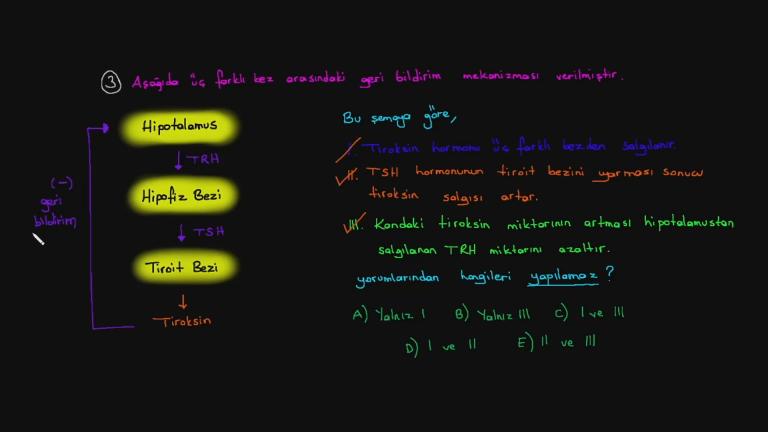 3 Aşağıda üç farklı bez arasındaki geri bildirim mekanizması verilmiştir.
Hipotalamus
TRH
Hipofiz Bezi
TSH
Tiroit Bezi
Tiroksin
(-)
geri
bildirim
Bu şemaya göre,
I. Tiroksin hormonu üç farklı bezden salgılanır.
II. TSH hormonunun tiroit bezini uyarması sonucu
tiroksin salgısı artar.
III. Kandaki tiroksin miktarının artması hipotalamustan
salgılanan TRH miktarını azaltır.
yorumlarından hangileri yapılamaz?
A) Yalnız I B) Yalnız III C) I ve III
D) I ve II E) II ve III